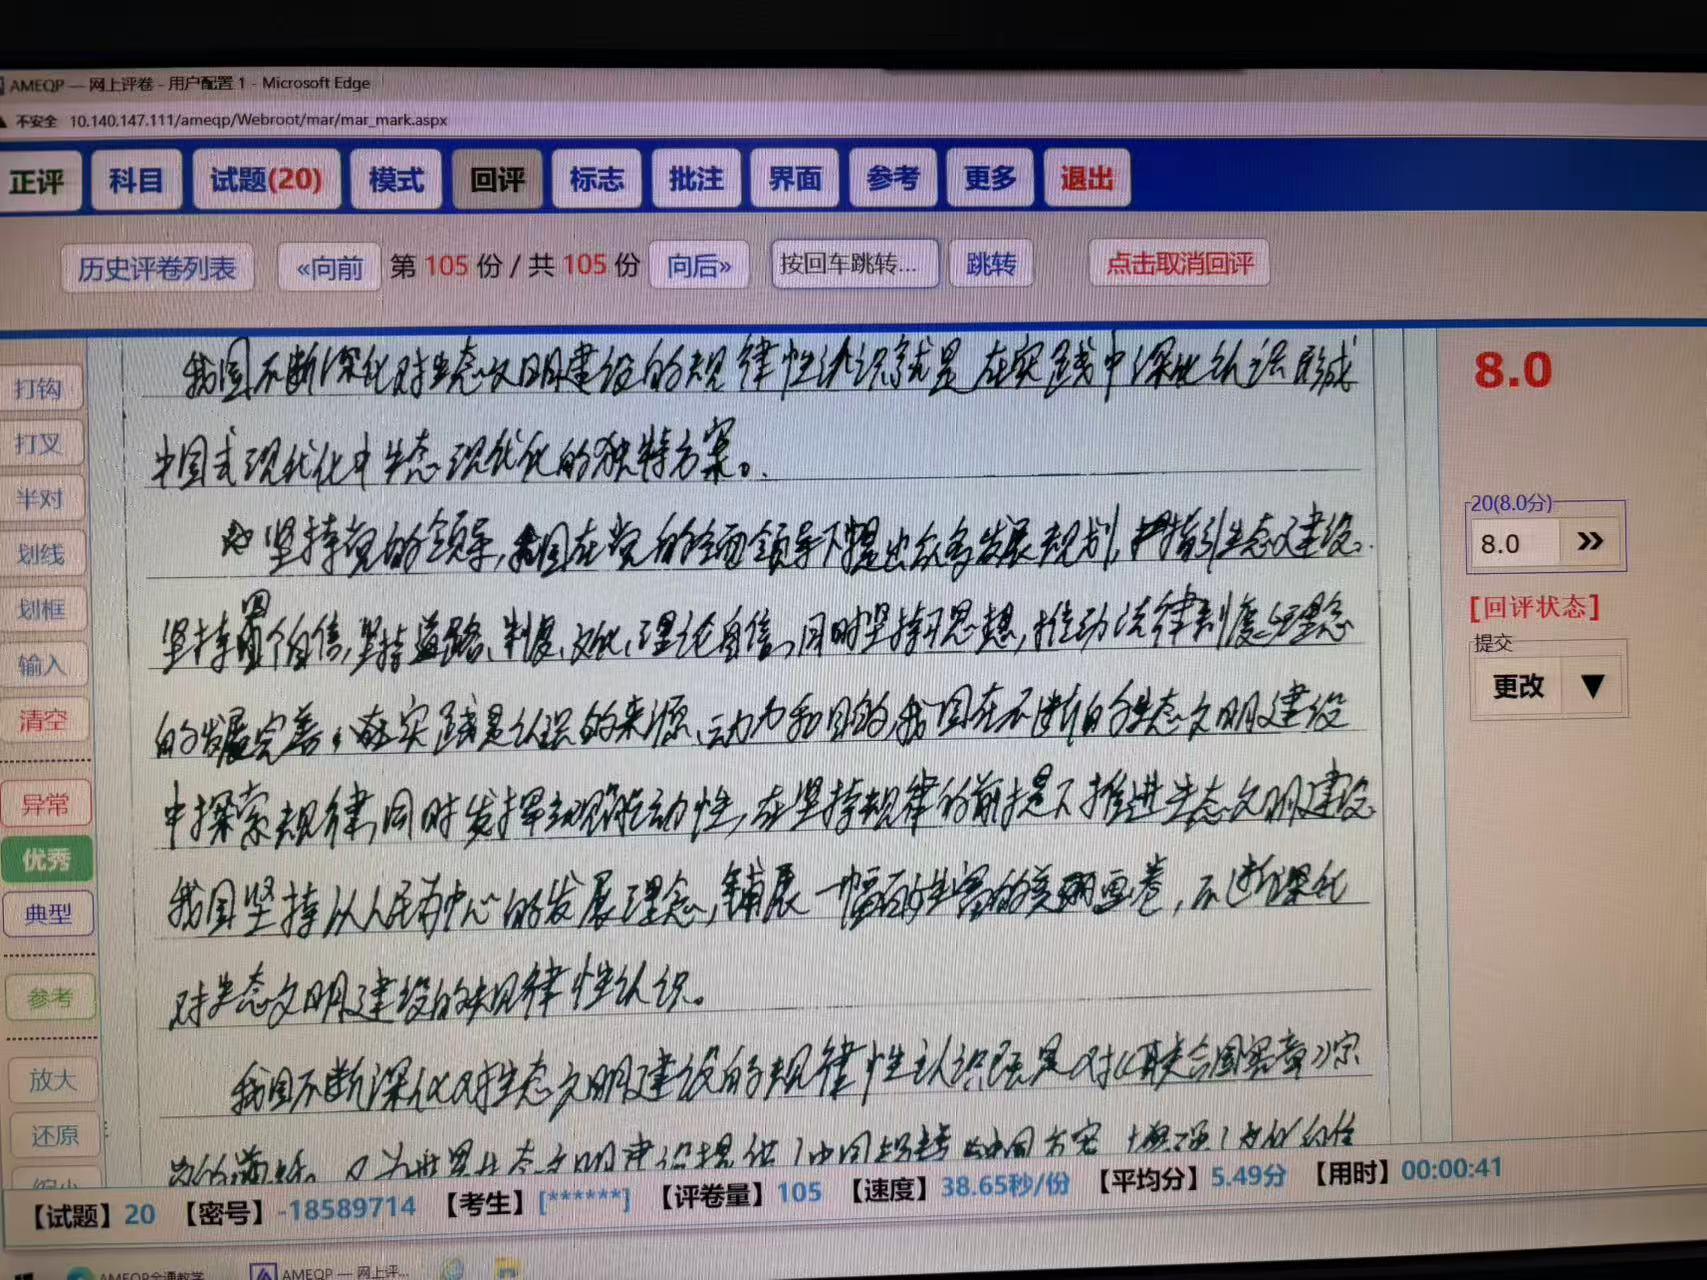 AMEQP — 网上评卷 - 用户配置 1 - Microsoft Edge
不安全 10.140.147.111/ameqp/Webroot/mar/mar_mark.aspx
正评 科目 试题(20) 模式 回评 标志 批注 界面 参考 更多 退出
历史评卷列表 «向前 第 105 份 / 共 105 份 向后» 按回车跳转... 跳转 点击取消回评
打钩
打叉
半对
划线
划框
输入
清空
异常
优秀
典型
参考
放大
还原
缩小
我国不断深化对生态文明建设的规律性认识就是在实践中深化认识形成
中国式现代化中生态现代化的独特方案。
坚持党的领导,我国在党的全面领导下提出众多发展规划,指引生态文建设。
坚持四个自信,坚持道路、制度、文化、理论自信,同时坚持习思想,推动法律制度与理念
的发展完善。实践是认识的来源、动力和目的,我国在不断的生态文明建设
中探索规律,同时发挥主观能动性,在坚持规律的前提下推进生态文明建设。
我国坚持以人民为中心的发展理念,铺展一幅的美画卷,不断深化
对生态文明建设的规律性认识。
我国不断深化对生态文明建设的规律性认识既是对《联合国宪章》宗
又为世界生态文明建设提供了中国智慧与中国方案
8.0
20(8.0分)
8.0 »
[回评状态]
提交
更改 ▼
【试题】20 【密号】-18589714 【考生】[******] 【评卷量】105 【速度】38.65秒/份 【平均分】5.49分 【用时】00:00:41
AMEQP — 网上评...